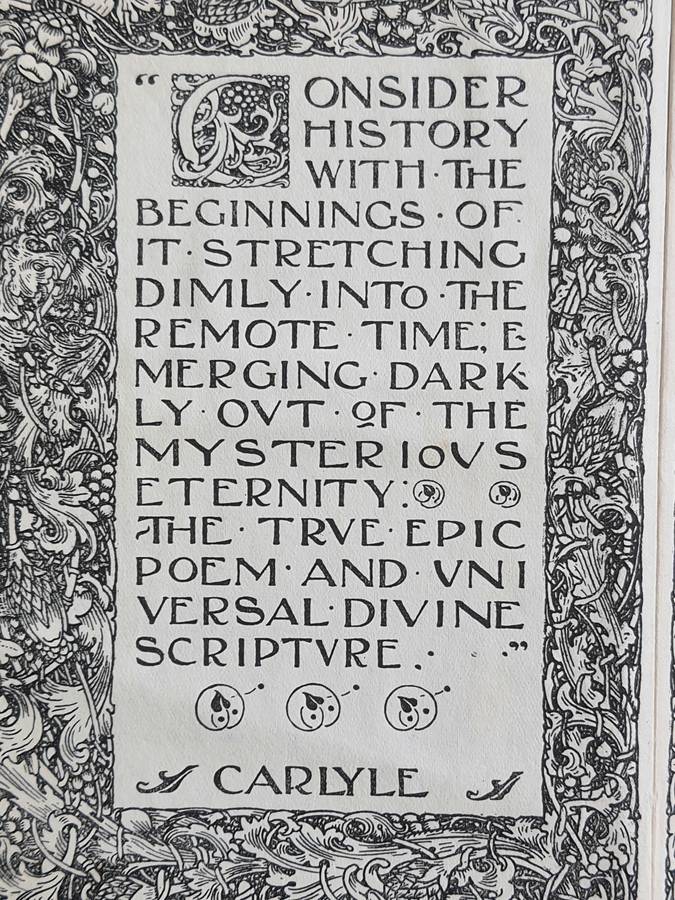 “CONSIDER
HISTORY
WITH·THE
BEGINNINGS·OF·
IT·STRETCHING
DIMLY·INTO·THE
REMOTE·TIME; E-
MERGING·DARK-
LY·OVT·OF·THE
MYSTERIOVS
ETERNITY:
THE·TRVE·EPIC
POEM·AND·VNI
VERSAL·DIVINE
SCRIPTVRE.· ·”
CARLYLE